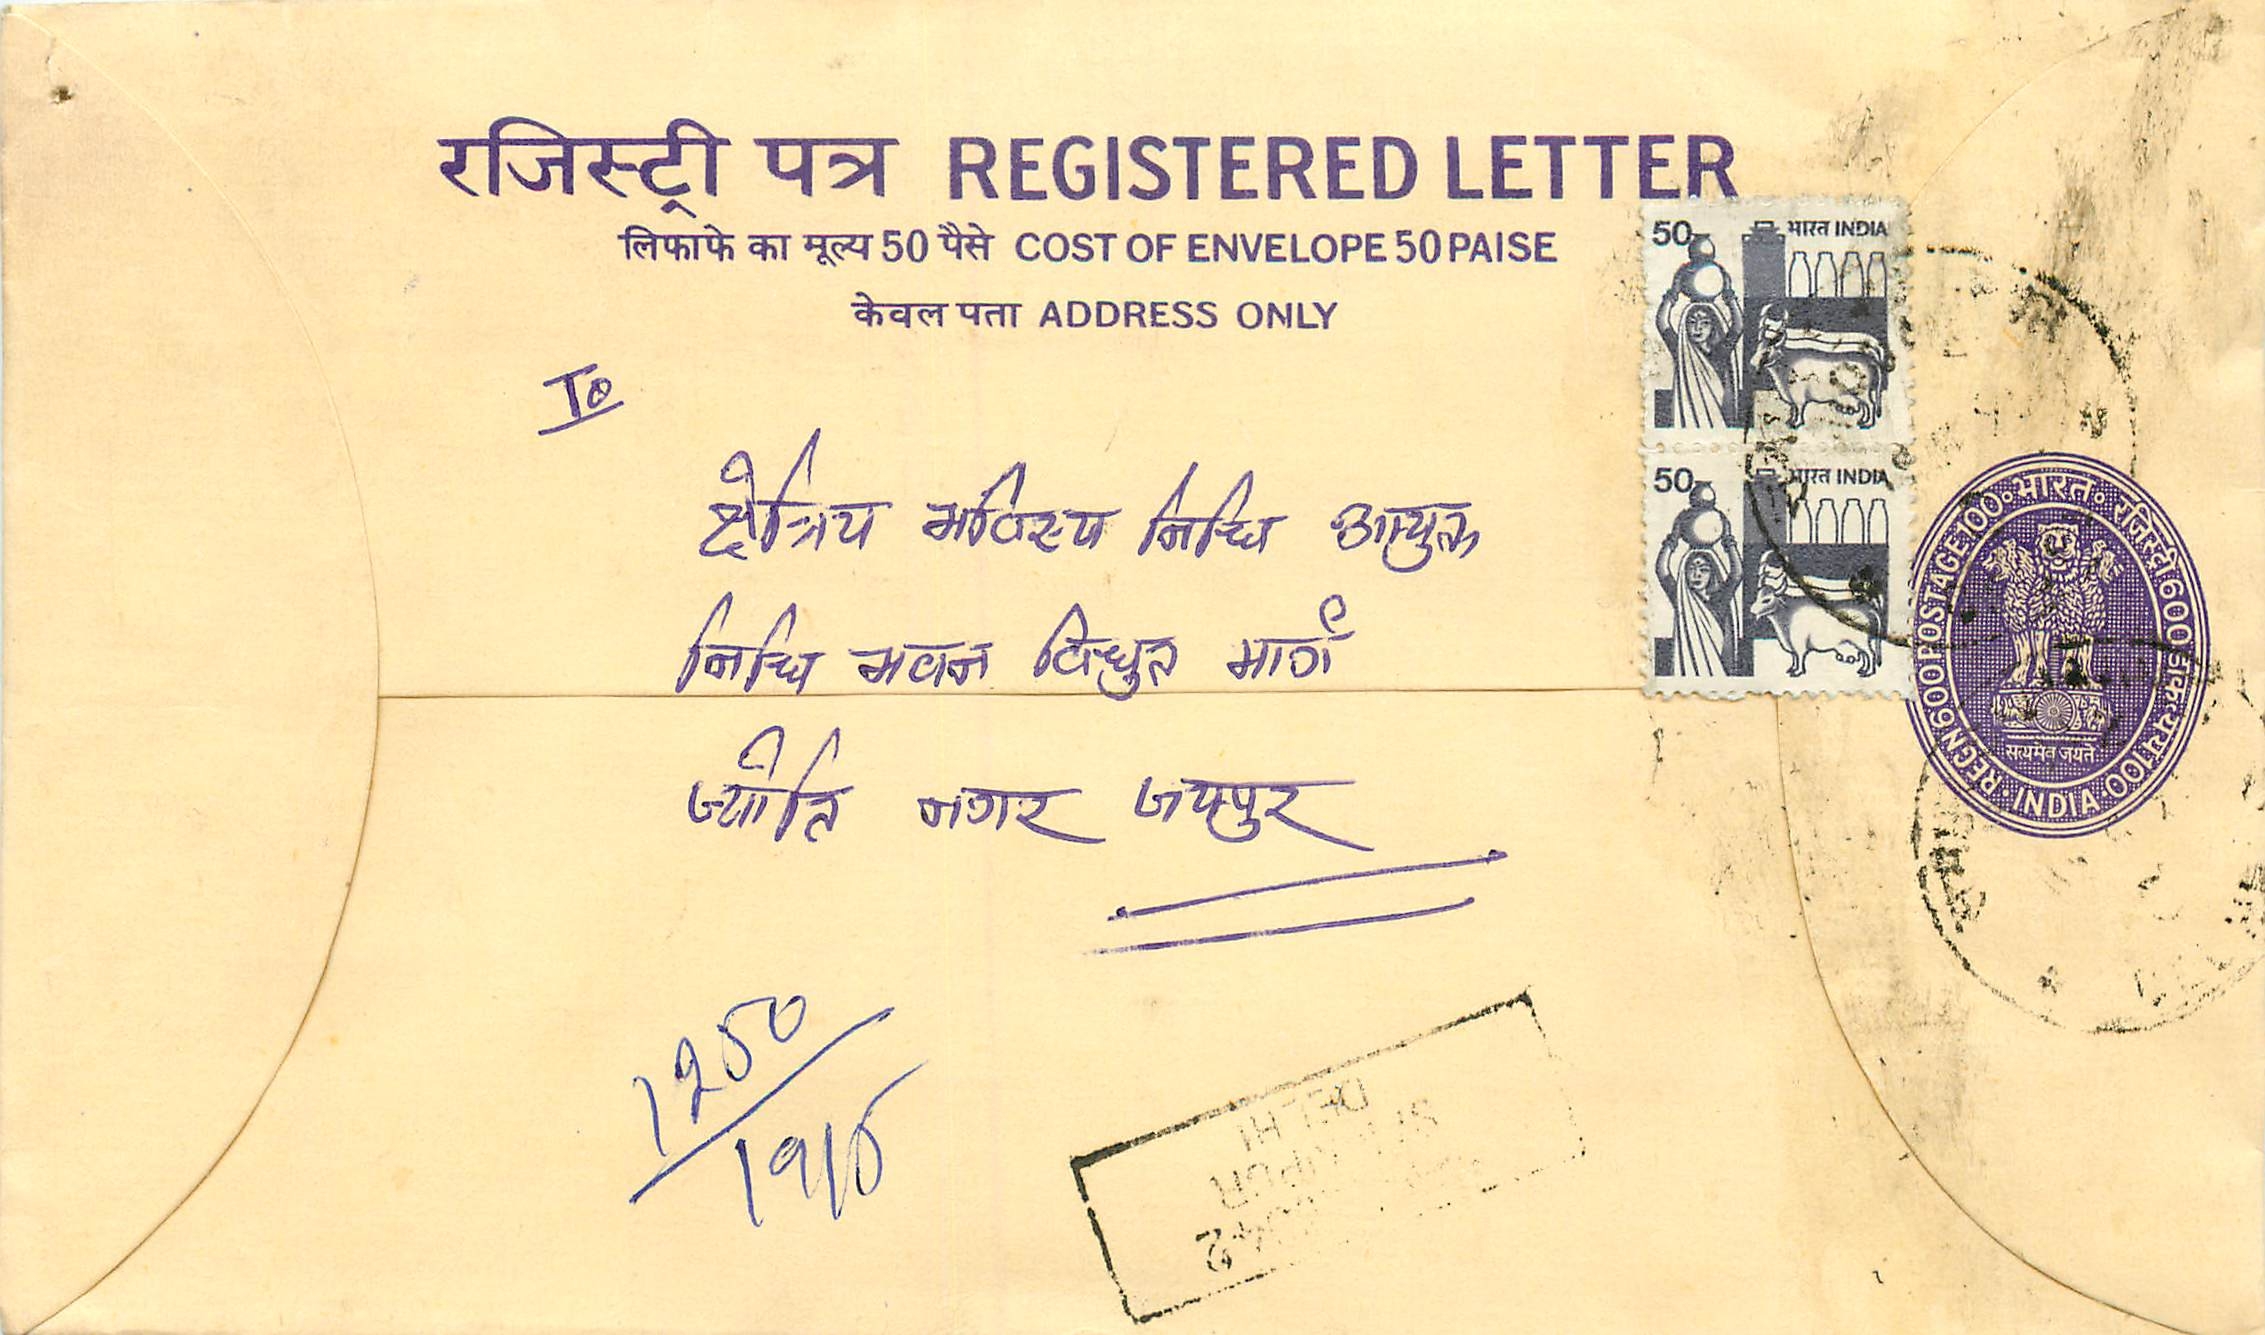 रजिस्ट्री पत्र REGISTERED LETTER
लिफाफे का मूल्य 50 पैसे COST OF ENVELOPE 50 PAISE
केवल पता ADDRESS ONLY
50 भारत INDIA
50 भारत INDIA
REGN 600 POSTAGE 100 भारत रजिस्ट्री 600 डाक व्यय 100 INDIA
सत्यमेव जयते
To
क्षेत्रिय भविस्य निधि आयुक्त
निधि भवन विधुत मार्ग
ज्योति नगर जयपुर
1250
1916
DELHI